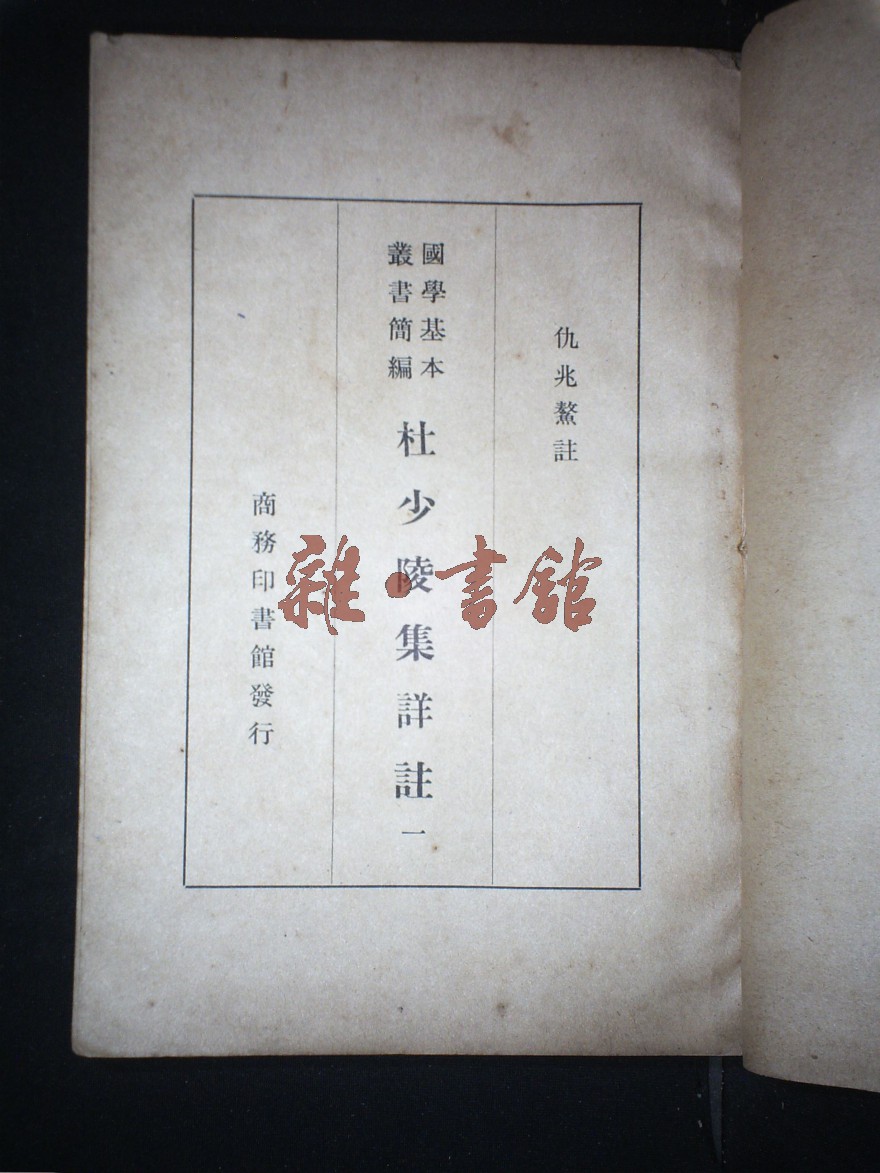 仇兆鰲註
國學基本
叢書簡編
杜少陵集詳註一
商務印書館發行
雜·書館